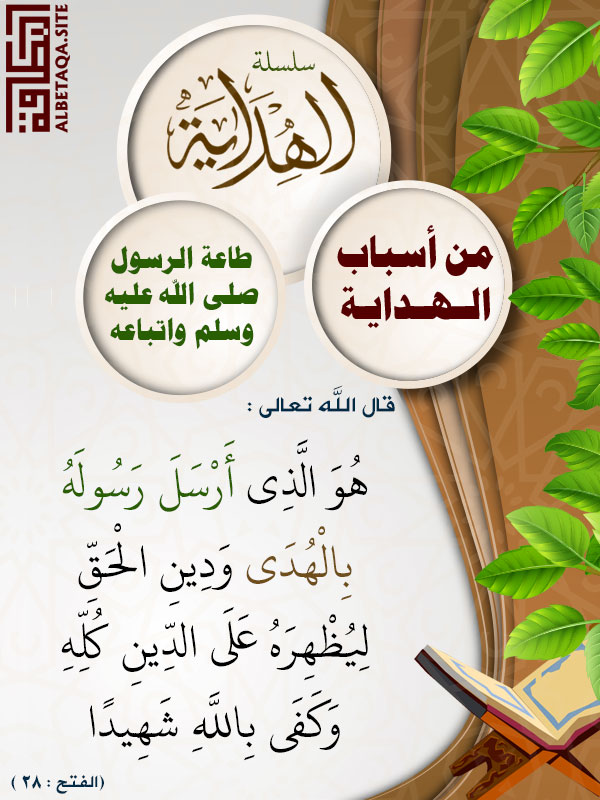 البطاقة
ALBETAQA.SITE
سلسلة
الهداية
من أسباب
الـهـدايـة
طاعة الرسول
صلى الله عليه
وسلم واتباعه
قال اللَّه تعالى :
هُوَ الَّذِى أَرْسَلَ رَسُولَهُ
بِالْهُدَى وَدِينِ الْحَقِّ
لِيُظْهِرَهُ عَلَى الدِّينِ كُلِّهِ
وَكَفَى بِاللَّهِ شَهِيدًا
(الفتح : ٢٨ )